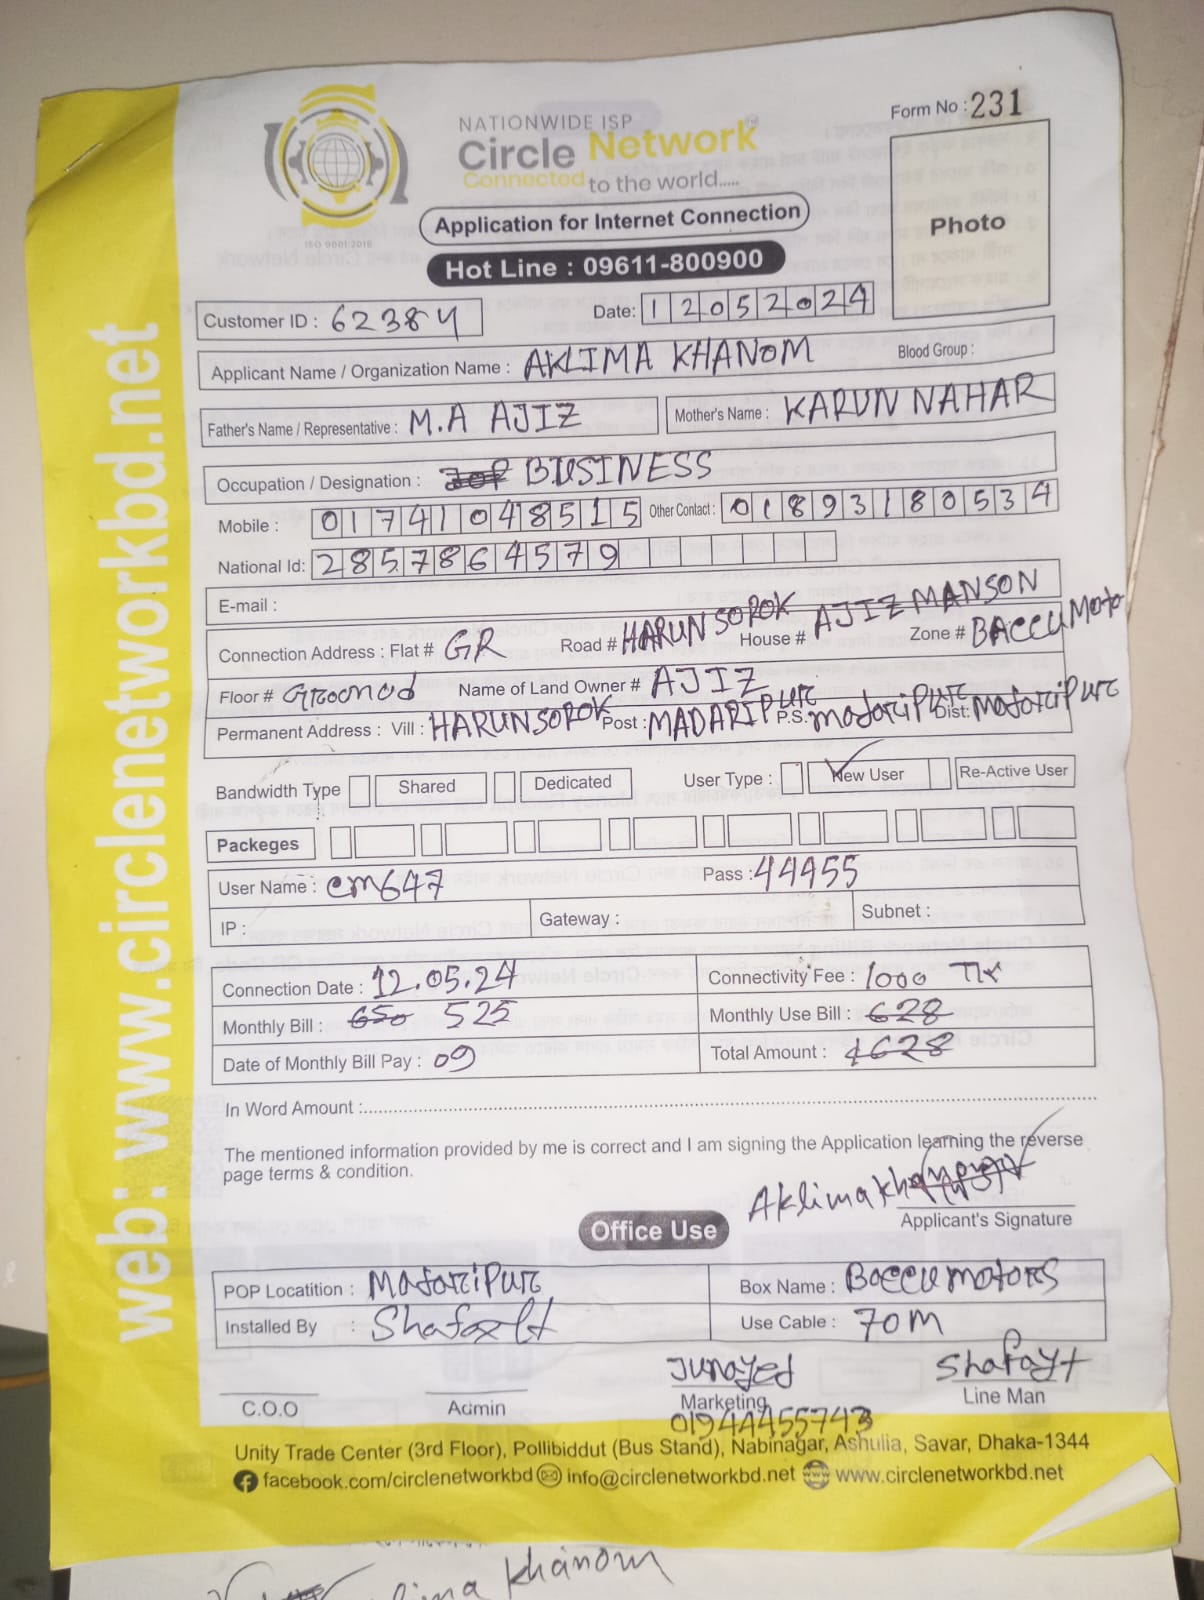 Form No : 231
NATIONWIDE ISP
Circle Network
Connected to the world.....
ISO 9001:2015
Application for Internet Connection
Photo
Hot Line : 09611-800900
Customer ID : 62384
Date: 12052024
Applicant Name / Organization Name : AKLIMA KHANOM Blood Group :
Father's Name / Representative : M.A AJIZ Mother's Name : KARUN NAHAR
Occupation / Designation : BUSINESS
Mobile : 01741048515 Other Contact : 01893180534
National Id: 2857864579
E-mail :
Connection Address : Flat # GR Road # HARUN SOROK House # AJIZ MANSON Zone # BACCU Moto
Floor # Groonod Name of Land Owner # AJIZ
Permanent Address : Vill : HARUNSOROK Post : MADARIPUR P.S: madaripurc Dist: madaripurc
Bandwidth Type Shared Dedicated User Type : New User Re-Active User
Packeges
User Name : cm647 Pass : 44455
IP : Gateway : Subnet :
Connection Date : 12.05.24 Connectivity Fee : 1000 TK
Monthly Bill : 650 525 Monthly Use Bill : 628
Date of Monthly Bill Pay : 09 Total Amount : 1628
In Word Amount :
The mentioned information provided by me is correct and I am signing the Application learning the reverse
page terms & condition.
Aklima khanom
Applicant's Signature
Office Use
POP Locatition : Madaripur Box Name : Baccu motors
Installed By : Shafayt Use Cable : 70M
Junayed Shafayt
C.O.O Admin Marketing Line Man
01944455743
Unity Trade Center (3rd Floor), Pollibiddut (Bus Stand), Nabinagar, Ashulia, Savar, Dhaka-1344
facebook.com/circlenetworkbd info@circlenetworkbd.net www.circlenetworkbd.net
web: www.circlenetworkbd.net
khanom